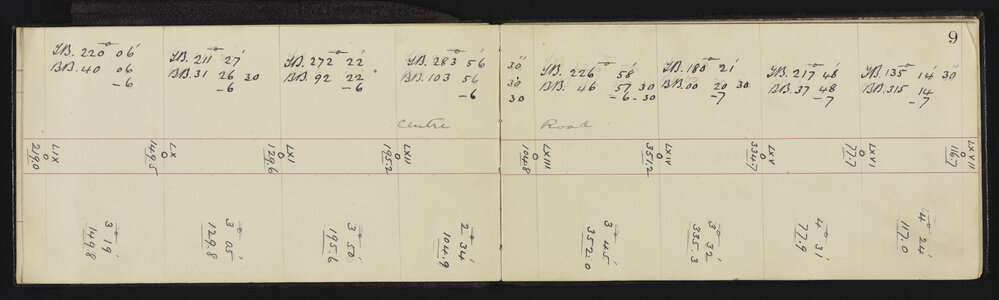 9
F.B. 220° 06'
B.B. 40 06
-6
F.B. 211° 27'
B.B. 31 26 30
-6
F.B. 272° 22'
B.B. 92 22
-6
F.B. 283° 56' 30"
B.B. 103 56 30
-6 30
F.B. 226° 58'
B.B. 46 57 30
-6-30
F.B. 180° 21'
B.B. 00 20 30
-7
F.B. 217° 48'
B.B. 37 48
-7
F.B. 135° 14' 30"
B.B. 315 14
-7
Centre Road
LIX
219.0
LX
149.5
LXI
129.6
LXII
195.2
LXIII
104.8
LXIV
351.2
LXV
334.7
LXVI
77.7
LXVII
116.7
3° 19'
149.8
3° 05'
129.8
3° 50'
195.6
2° 34'
104.9
3 44.5
352.0
3° 32'
335.3
4° 31'
77.9
4° 24'
117.0